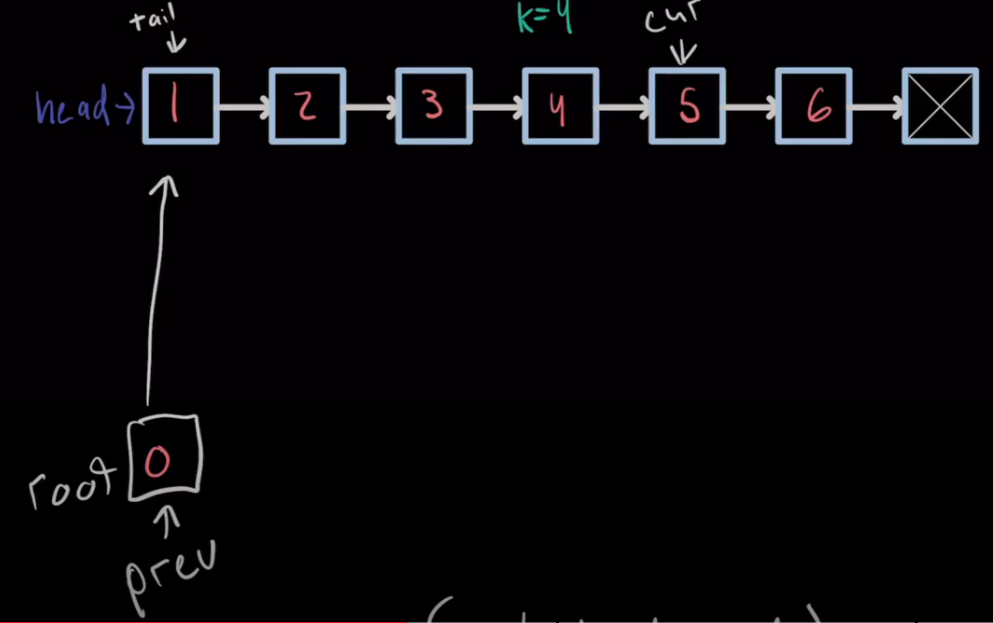 tail
k=4
cur
head
1
2
3
4
5
6
0
root
prev